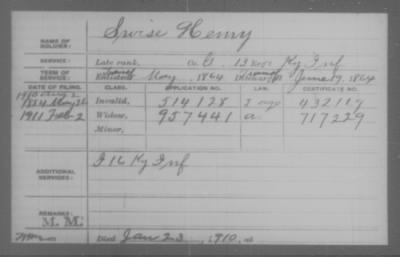 NAME OF SOLDIER: Swise Henry
SERVICE: Late rank, Co. G, 13 Regt. Ky Inf
TERM OF SERVICE: Enlisted May, 1864 Discharged June 19, 1864
DATE OF FILING. CLASS. APPLICATION NO. LAW. CERTIFICATE NO.
1884 May 26 Invalid, 514128 432119
1911 Feb 2 Widow, 957441 a 717229
Minor,
ADDITIONAL SERVICES: F 16 Ky Inf
REMARKS:
M. M.
Died Jan 23, 1910, at